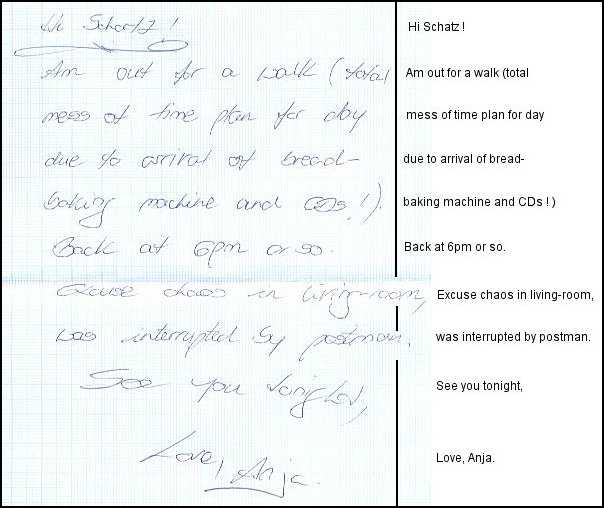 Hi Schatz !
Hi Schatz !
Am out for a walk (total
Am out for a walk (total
mess of time plan for day
mess of time plan for day
due to arrival of bread-
due to arrival of bread-
baking machine and CDs !).
baking machine and CDs ! )
Back at 6pm or so.
Back at 6pm or so.
Excuse chaos in living-room,
Excuse chaos in living-room,
was interrupted by postman.
was interrupted by postman.
See you tonight,
See you tonight,
Love, Anja.
Love, Anja.